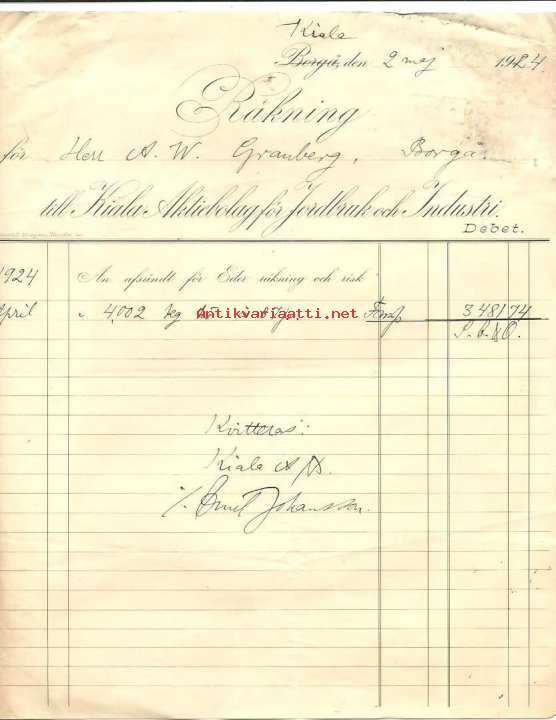 Kiala
Borgå, den 2 maj 1924.
Räkning
för Herr A. W. Granberg, Borgå.
till Kiala Aktiebolag för Jordbruk och Industri.
Debet.
1924 An afsändt för Eder räkning och risk
April " 4,002 kg Fmk 348174
Antikvariaatti.net
S. E. & O.
Kvitteras:
Kiala A/B.
Johansson.